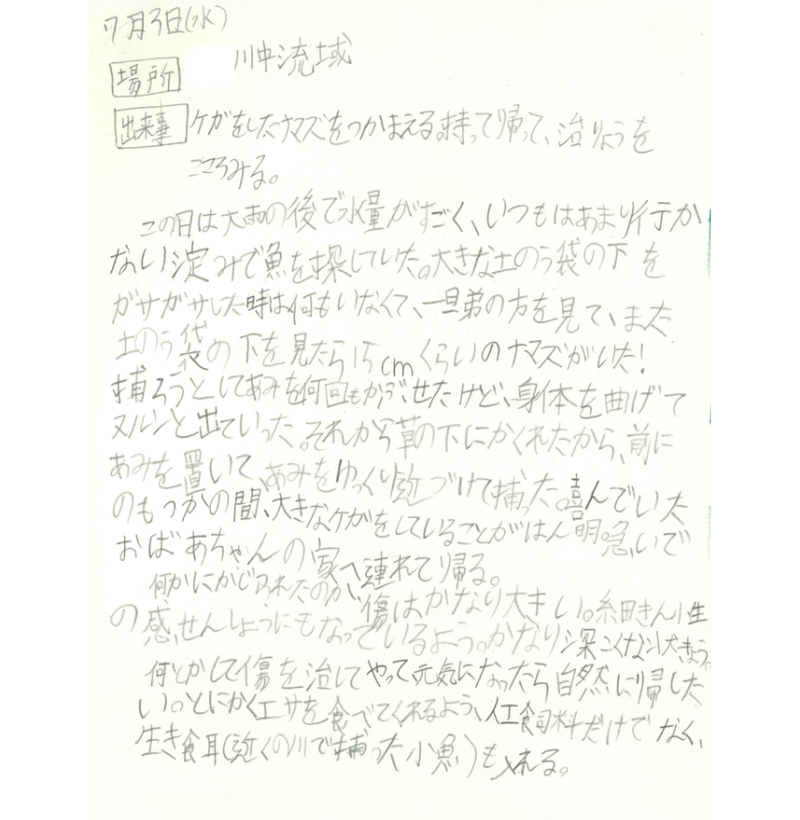 7月3日(水)
場所 川中流域
出来事 ケガをしたナマズをつかまえる。持って帰って、治りょうを
こころみる。
この日は大雨の後で水量がすごく、いつもはあまり行か
ない淀みで魚を探していた。大きな土のう袋の下を
ガサガサした時は何もいなくて、一旦弟の方を見て、また
土のう袋の下を見たら15cmくらいのナマズがいた!
捕ろうとしてあみを何回もかぶせたけど、身体を曲げて
ヌルンと出ていった。それから草の下にかくれたから、前に
あみを置いて、あみをゆっくり近づけて捕った。喜んでいた
のもつかの間、大きなケガをしていることがはん明。急いで
おばあちゃんの家へ連れて帰る。
何かにかじられたのか、傷はかなり大きい。細きん性
の感せんしょうにもなっているよう。かなり深こくな状きょう。
何とかして傷を治してやって元気になったら自然に帰した
い。とにかくエサを食べてくれるよう、人工飼料だけでなく、
生き餌(近くの川で捕った小魚)も入れる。